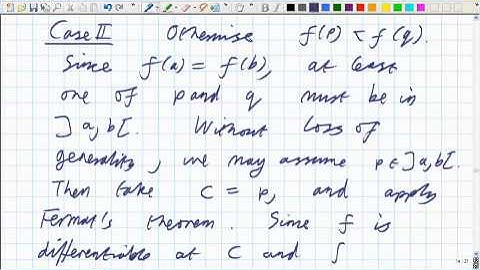 Case II Otherwise f(p) < f(q).
Since f(a) = f(b), at least
one of p and q must be in
]a,b[. Without loss of
generality, we may assume p∈]a,b[.
Then take c = p, and apply
Fermat's theorem. Since f is
differentiable at c and f